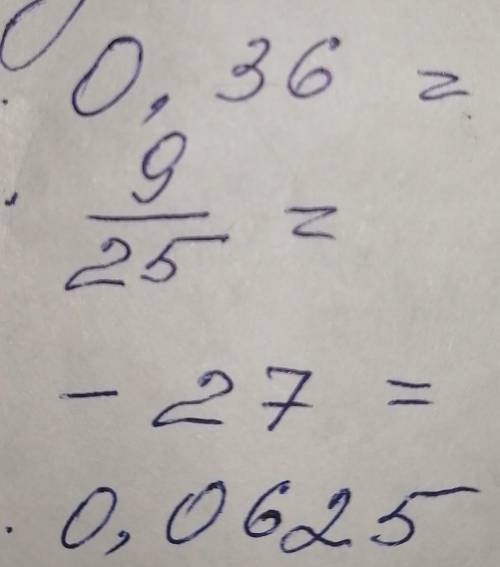 0,36 =
9/25 =
- 27 =
0,0625